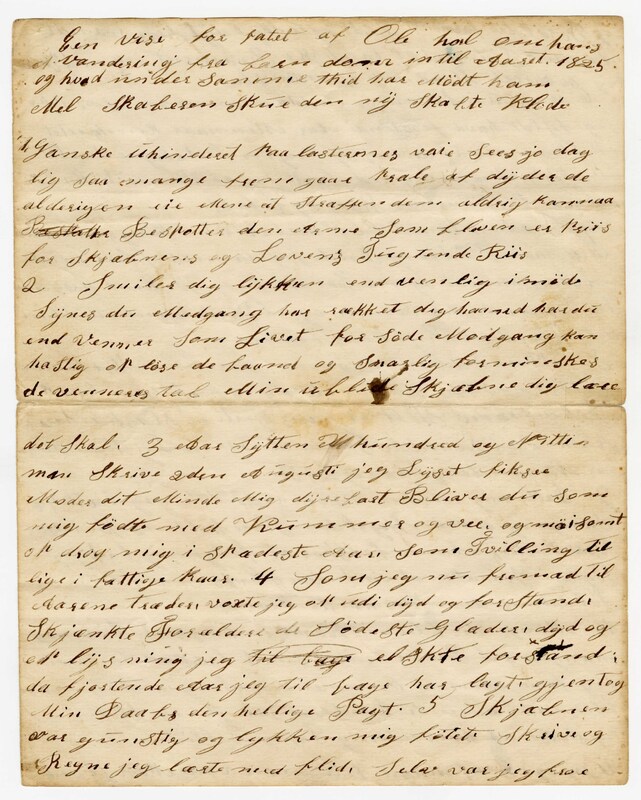 Een vise for fatet af Ole hol om hans
Vandering fra been dom intil Aaret. 1825.
og hvad under samme thid har Mödt ham
Mel Skaberen Skue den nÿ Skabte Klode
1, Ganske uhinderet paa lasternes vaie Sees jo dag
lig saa mange frem gaae Prale af dÿder de
alderigen eie Mene at Straffen dem aldrig kan naa
Bespotter den Arme Som Even er Priis
for Skjæbnens og Lovens Tugtende Riis
2 Smiler dig lÿkken end venlig imöde
Sÿnes du Modgang har rækket dig haand har du
end Venner Som Livet for Söde Modgang kan
hastig op löse de baand og Snarlig forminskes
de venners tal Min ublide Skjæbne dig lære
det Skal. 3 Aar Sÿtten hundred og Nitti
man Skrive 2den August jeg Lÿset fik see
Moder dit Minde Mig dÿrebart Bliver du som
mig födte med Kummer og vee, og möisomt
op drog mig i Spædeste Aar Som Tvilling til
lige i fattige Kaar. 4 Som jeg nu fremad til
Aarene træder, voxte jeg op udi dÿd og forstand,
Skjænkte Forældere de Södeste Glæder, dÿd og
op lÿsning jeg elskte forstand,
da fjortende Aar jeg til bage har lagt, gjentog
Min Daabs den hellige Pagt. 5 Skjæbnen
var gunstig og lÿkken mig föiet Skrive og
Regne jeg lærte med flid, Selv var jeg froe